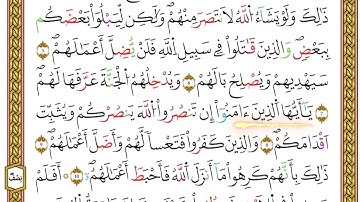 ذَٰلِكَ وَلَوْ يَشَآءُ ٱللَّهُ لَٱنتَصَرَ مِنْهُمْ وَلَٰكِن لِّيَبْلُوَا۟ بَعْضَكُم
بِبَعْضٍ وَٱلَّذِينَ قُتِلُوا۟ فِى سَبِيلِ ٱللَّهِ فَلَن يُضِلَّ أَعْمَٰلَهُمْ ٤
سَيَهْدِيهِمْ وَيُصْلِحُ بَالَهُمْ ٥ وَيُدْخِلُهُمُ ٱلْجَنَّةَ عَرَّفَهَا لَهُمْ
٦ يَٰٓأَيُّهَا ٱلَّذِينَ ءَامَنُوٓا۟ إِن تَنصُرُوا۟ ٱللَّهَ يَنصُرْكُمْ وَيُثَبِّتْ
أَقْدَامَكُمْ ٧ وَٱلَّذِينَ كَفَرُوا۟ فَتَعْسًا لَّهُمْ وَأَضَلَّ أَعْمَٰلَهُمْ ٨
ذَٰلِكَ بِأَنَّهُمْ كَرِهُوا۟ مَآ أَنزَلَ ٱللَّهُ فَأَحْبَطَ أَعْمَٰلَهُمْ ٩ أَفَلَمْ